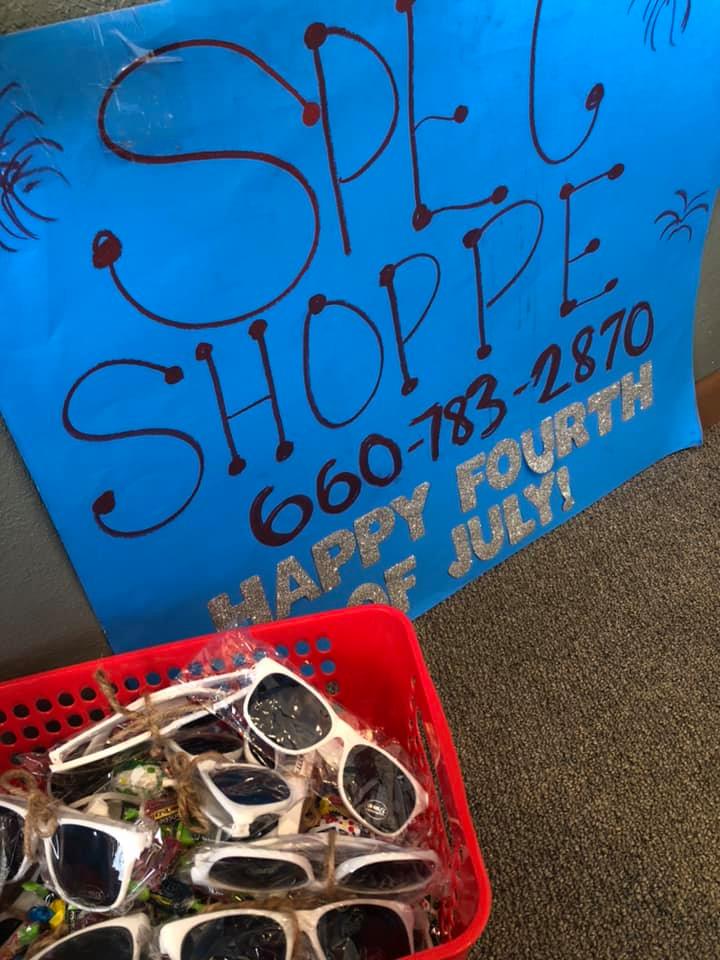 SPEC
SHOPPE
660-783-2870
HAPPY FOURTH
OF JULY!